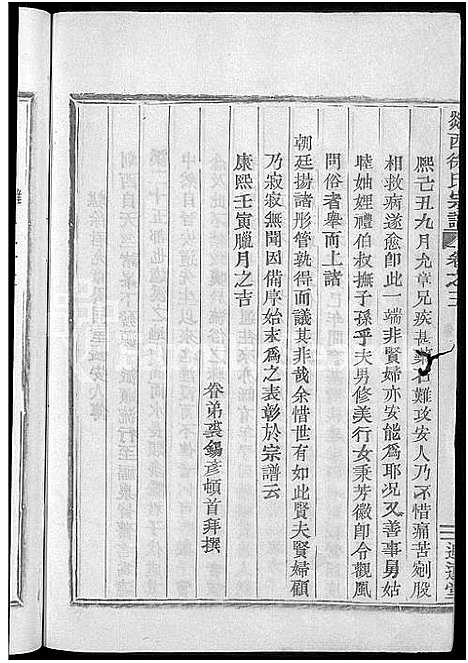 剡西徐氏宗譜 卷之三
熙己丑九月允章兄疾甚藥石難攻安人乃不惜痛苦剜股
相救病遂愈卽此一端非賢婦亦安能爲耶况又善事舅姑
睦妯娌禮伯叔撫子孫乎夫男修美行女秉芳徽卽令觀風
問俗者舉而上諸
朝廷揚諸彤管孰得而議其非哉余惜世有如此賢夫賢婦顧
乃寂寂無聞因備序始末爲之表彰於宗譜云
康熙壬寅臘月之吉
眷弟裘錫彥頓首拜撰